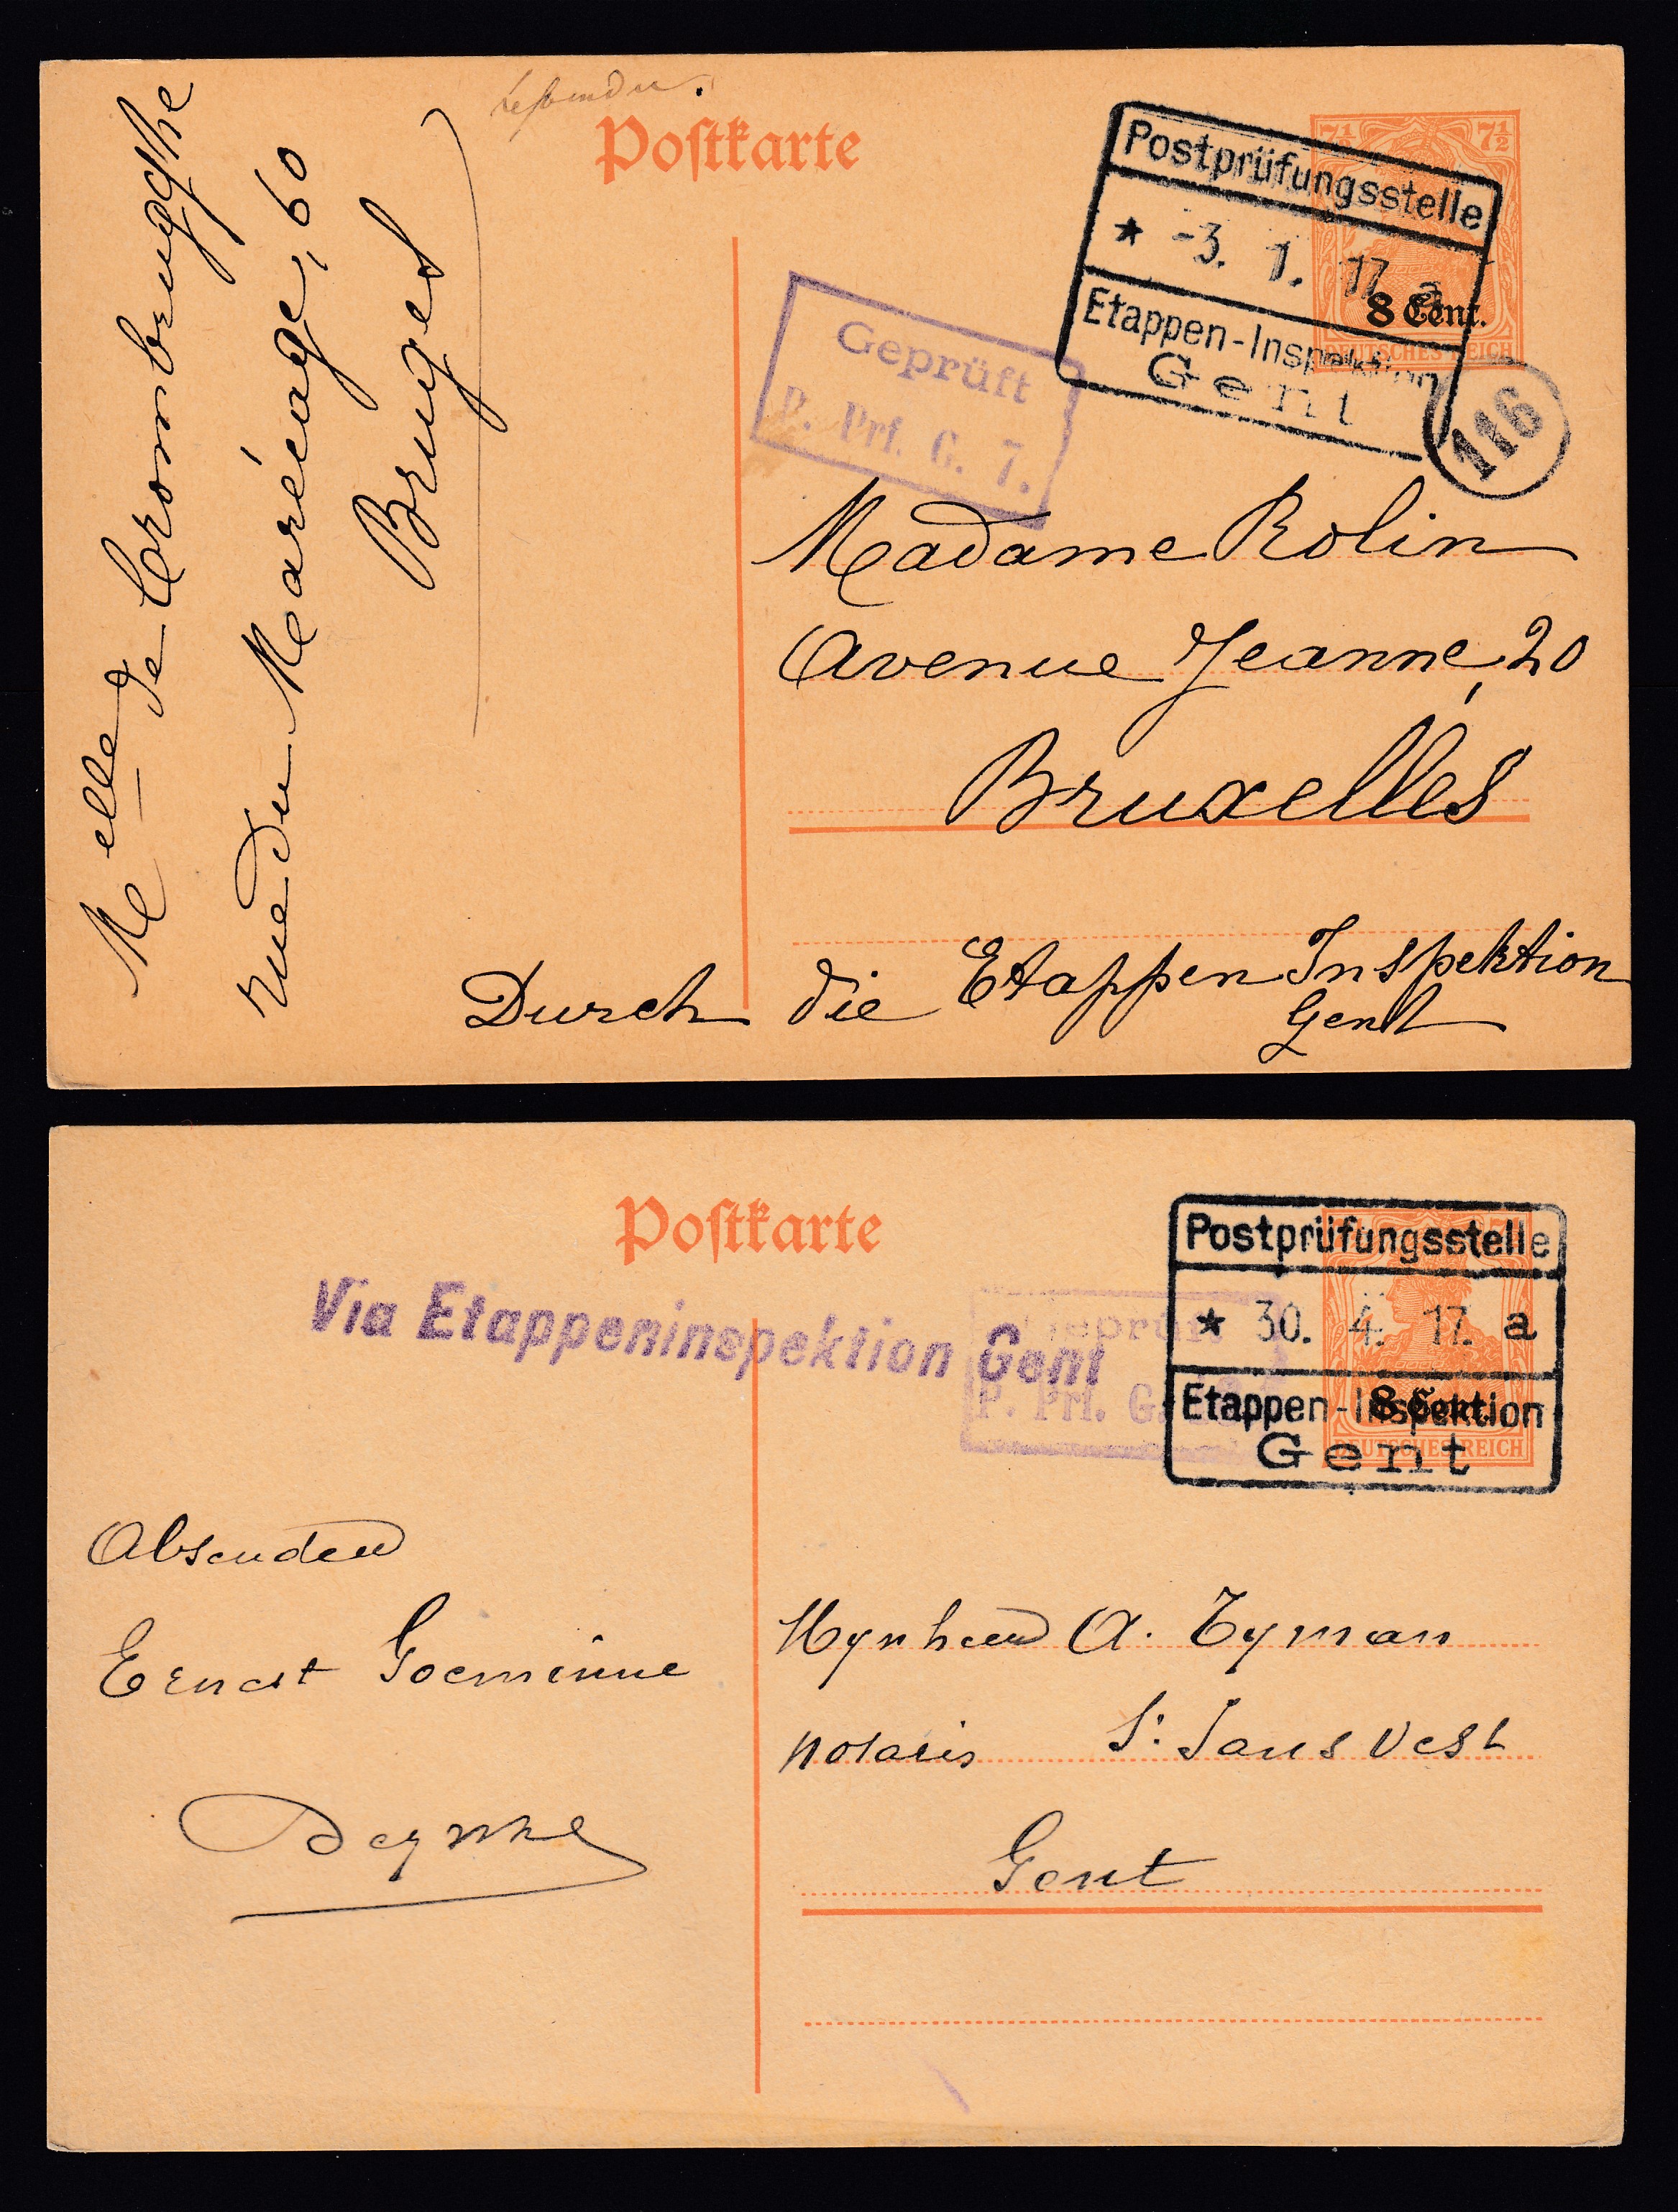 répondu.
Postkarte
7½ 7½
8 Cent.
DEUTSCHES REICH
Postprüfungsstelle
* -3. 1. 17. a
Etappen-Inspektion
Gent
116
Geprüft
P. Prf. G. 7.
Melle de Crombrugghe
rue du Marécage, 60
Bruges
Madame Rolin
Avenue Jeanne, 20
Bruxelles
Durch die Etappen Inspektion
Gent
Postkarte
8 Cent.
DEUTSCHES REICH
Postprüfungsstelle
* 30. 4. 17. a
Etappen-Inspektion
Gent
Via Etappeninspektion Gent
Geprüft
P. Prf. G.
Absender
Ernest Goeminne
Deynze
Mynheer A. Tyman
notaris S: Jans Vest
Gent